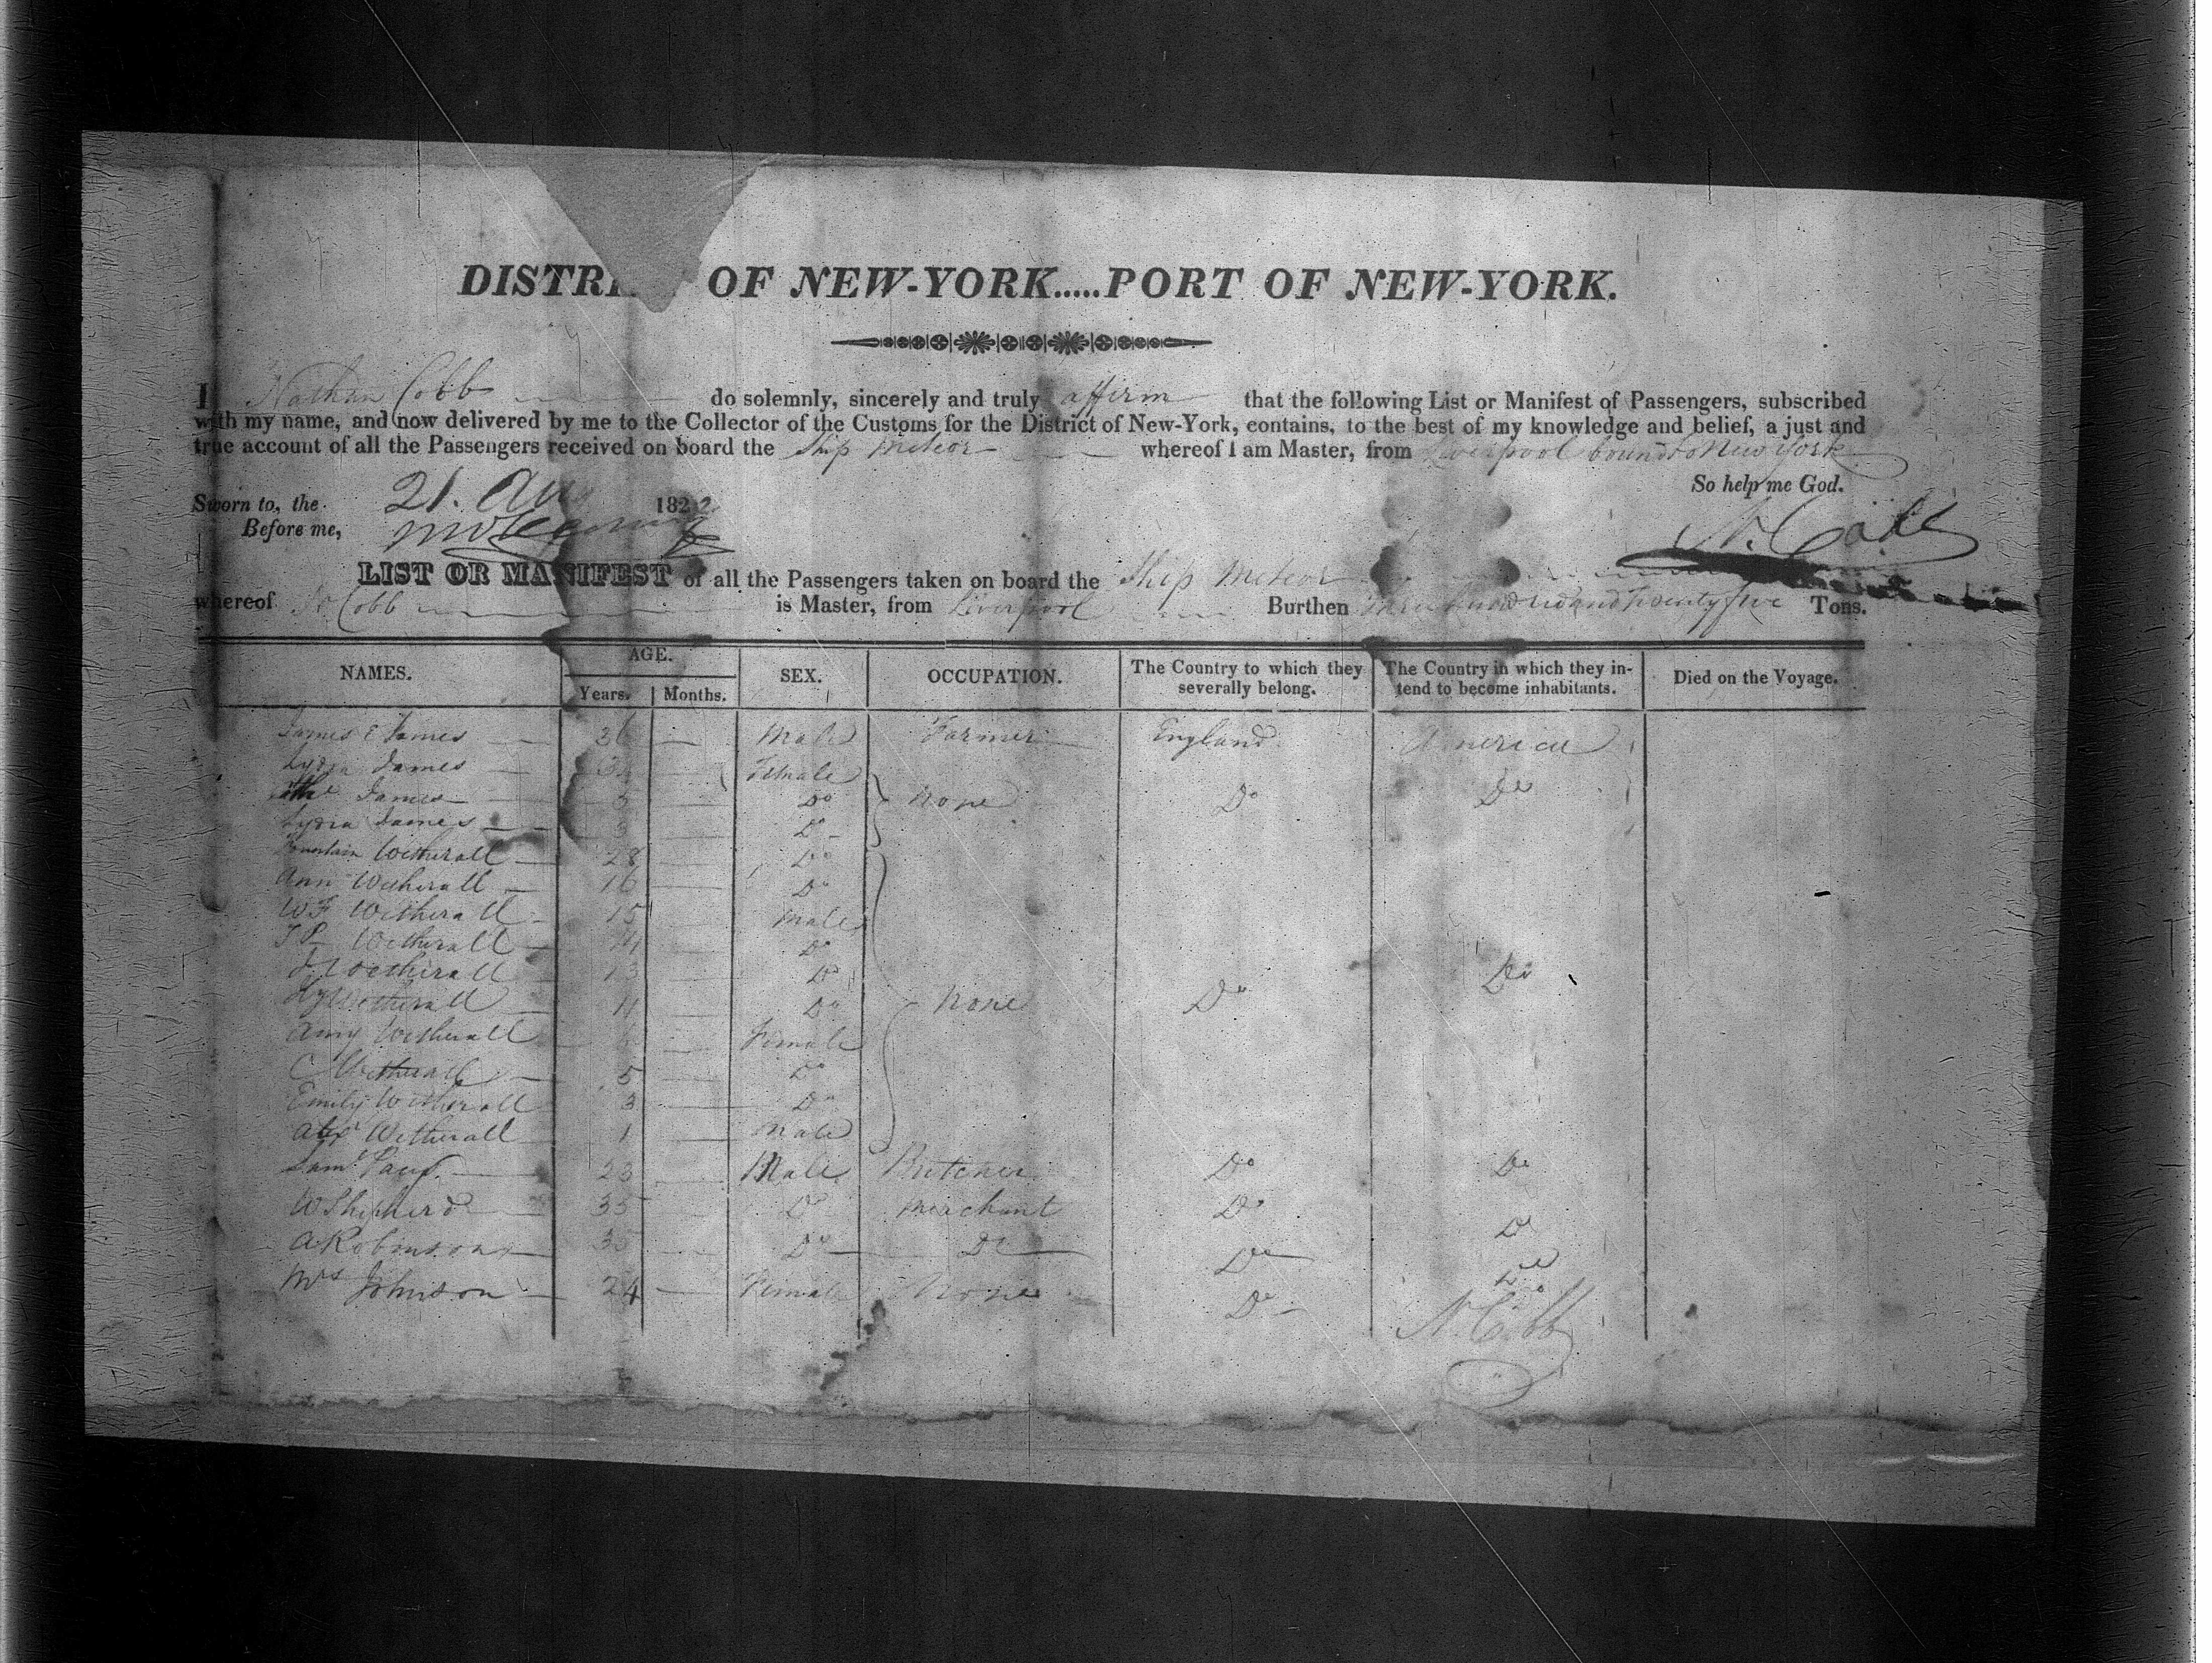 DISTRI OF NEW-YORK.....PORT OF NEW-YORK.
I Nathan Cobb do solemnly, sincerely and truly affirm that the following List or Manifest of Passengers, subscribed
with my name, and now delivered by me to the Collector of the Customs for the District of New-York, contains, to the best of my knowledge and belief, a just and
true account of all the Passengers received on board the Ship Meteor whereof I am Master, from Liverpool bound to New York
So help me God.
Sworn to, the 21. Aug 1822
Before me,
N. Cobb
LIST OR MANIFEST of all the Passengers taken on board the Ship Meteor
whereof Cobb is Master, from Liverpool Burthen Three hundred and twenty five Tons.
NAMES. AGE. Years. Months. SEX. OCCUPATION. The Country to which they severally belong. The Country in which they intend to become inhabitants. Died on the Voyage.
James E James 36 Male Farmer England America
Lydia James Female
James Do none Do Do
Lydia James 3 Do
Witherall 28 Do
Ann Witherall 16 Do
WF Witherall 15 Male
TP Witherall 14 Do
J Witherall 13 Do Do
Hy Witherall 11 Do None Do
Amy Witherall Female
C Witherall 5 Do
Emily Witherall 3 Do
Alexr Witherall 1 Male
Saml 23 Male Butcher Do Do
W Shepherd 35 Do Merchant Do Do
A Robinson 35 Do Do Do Do
Mrs Johnson 24 Female None Do Do
N. Cobb